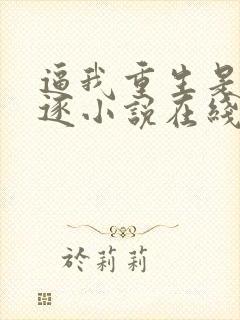 逼我重生是
逐小說在綫
於莉莉